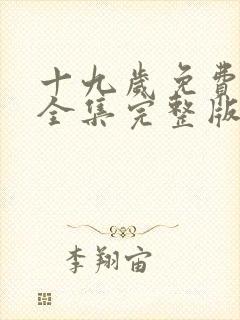 十九歲免費
全集完整版
李翔宙